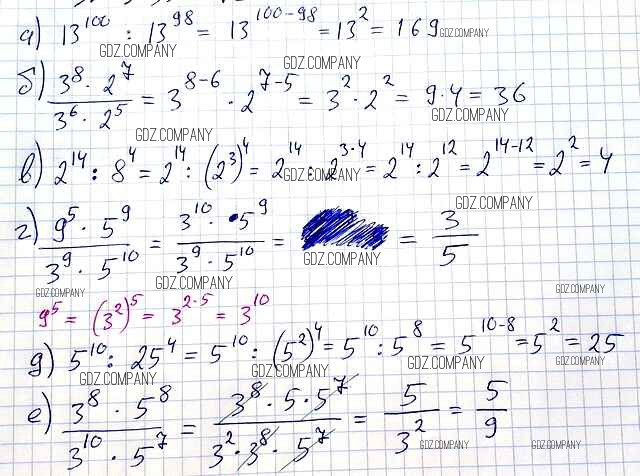 а) 13^100 : 13^98 = 13^(100-98) = 13^2 = 169 GDZ.COMPANY
GDZ.COMPANY
GDZ.COMPANY
б) (3^8 · 2^7)/(3^6 · 2^5) = 3^(8-6) · 2^(7-5) = 3^2 · 2^2 = 9·4 = 36
GDZ.COMPANY
GDZ.COMPANY
в) 2^14 : 8^4 = 2^14 : (2^3)^4 = 2^14 : 2^(3·4) = 2^14 : 2^12 = 2^(14-12) = 2^2 = 4
GDZ.COMPANY
GDZ.COMPANY
г) (9^5 · 5^9)/(3^9 · 5^10) = (3^10 · 5^9)/(3^9 · 5^10) = = 3/5
GDZ.COMPANY
GDZ.COMPANY
GDZ.COMPANY
GDZ.COMPANY
9^5 = (3^2)^5 = 3^(2·5) = 3^10
д) 5^10 : 25^4 = 5^10 : (5^2)^4 = 5^10 : 5^8 = 5^(10-8) = 5^2 = 25
GDZ.COMPANY
GDZ.COMPANY
GDZ.COMPANY
GDZ.COMPANY
е) (3^8 · 5^8)/(3^10 · 5^7) = (3^8 · 5 · 5^7)/(3^2 · 3^8 · 5^7) = 5/3^2 = 5/9
GDZ.COMPANY
GDZ.COMPANY